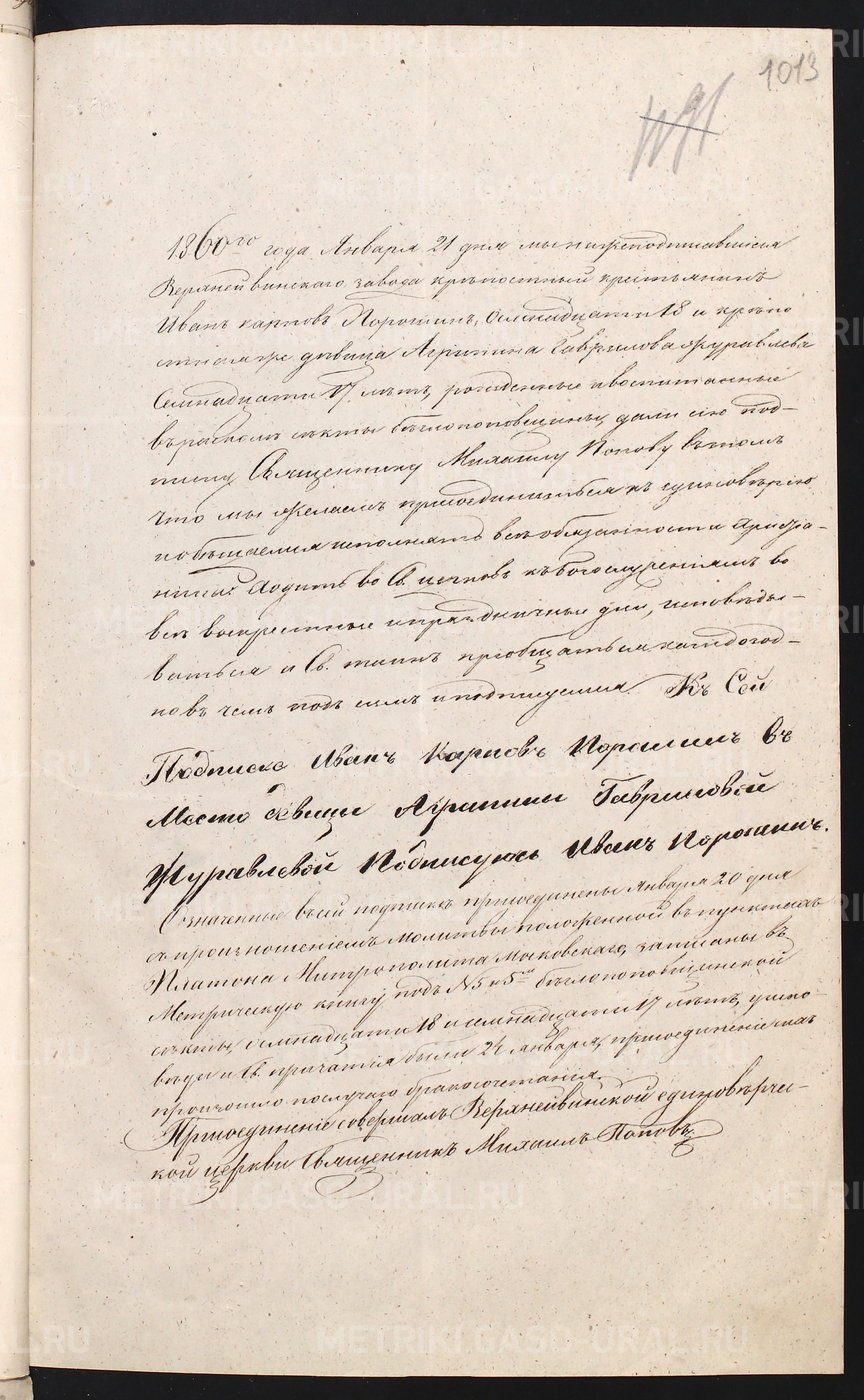 1013
1860го года Января 21 дня мы нижеподписавшіеся
Верхнейвинскаго завода крѣпостный крестьянинъ
Иванъ карповъ Порошинъ, Осмнадцати 18 и крѣпо
стная же дѣвица Агрипина Гаврилова Журавлева
Семнадцати 17 лѣтъ, рожденные и воспитанные
въ расколѣ секты бѣглопоповщины, дали сію под-
писку Священнику Михаилу Попову въ томъ
что мы желаемъ присоединиться къ единовѣрію
и обѣщаемся исполнять всѣ обязанности
ходить во Св. церковь къ богослуженіямъ во
всѣ воскресные и праздничные дни, исповѣды-
ваться и Св. таинъ пріобщаться каждогод-
но въ чемъ подъ симъ и подписуемся. Къ Сей
Подписке Иванъ Карповъ Порошинъ Въ
Место девицы Агрипины Гавриловой
Журавлевой Подписуюсь Иванъ Порошинъ.
Означенные въ сей подпискѣ присоединены Января 20 дня
съ произношеніемъ молитвы положенной въ пунктахъ
Платона Митрополита Московскаго, записаны въ
Метрическую книгу подъ № 5 и 5 бѣглопоповщинской
секты, осмнадцати 18 и семнадцати 17 лѣтъ, у испо-
вѣди и Св. причастія были 21 января, присоединеніе ихъ
произошло по случаю бракосочетанія.
Присоединеніе совершалъ Верхнейвинской единовѣрчес-
кой церкви Священникъ Михаилъ Поповъ
METRIKI.GASO-URAL.RU